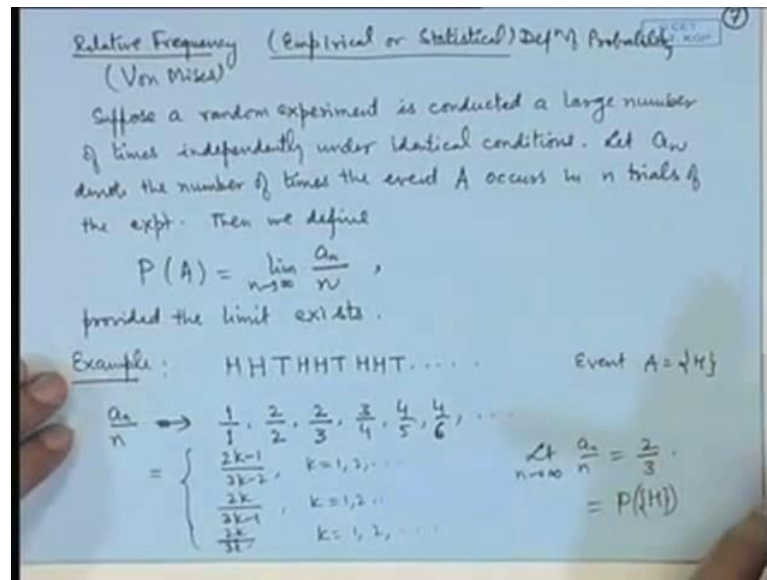 Relative Frequency (Empirical or Statistical) Defn of Probability
(Von Mises)
Suppose a random experiment is conducted a large number
of times independently under identical conditions. Let an
denote the number of times the event A occurs in n trials of
the expt. Then we define
P(A) = lim n→∞ an/n ,
provided the limit exists.
Example : HHTHHTHHT..... Event A = {H}
an/n → 1/1, 2/2, 2/3, 3/4, 4/5, 4/6, ...
= { 2k-1/3k-2, k=1,2,..
2k/3k-1, k=1,2..
2k/3k k=1,2,....
Lt n→∞ an/n = 2/3 .
= P({H})
7